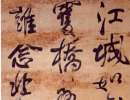 江城如
雙橋
誰念北